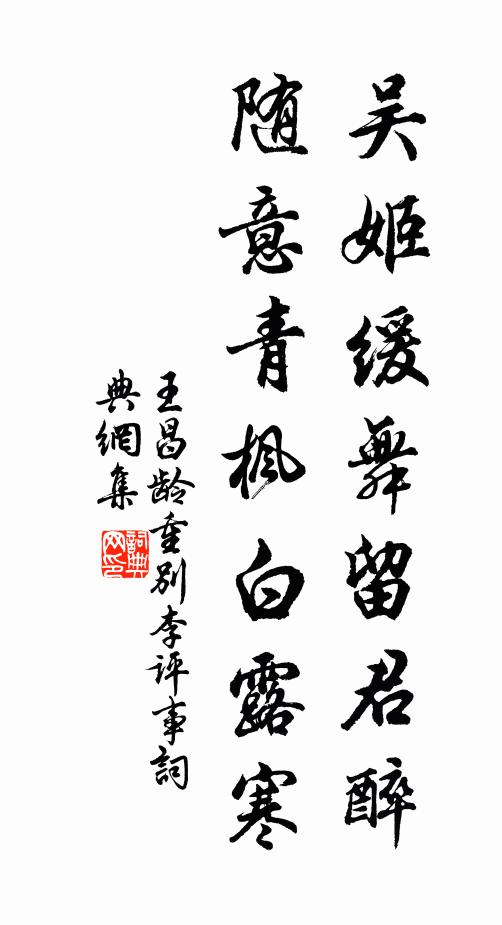 吴姬缓舞留君醉
随意青枫白露寒
王昌龄重别李评事詞
典網集
詞典网印